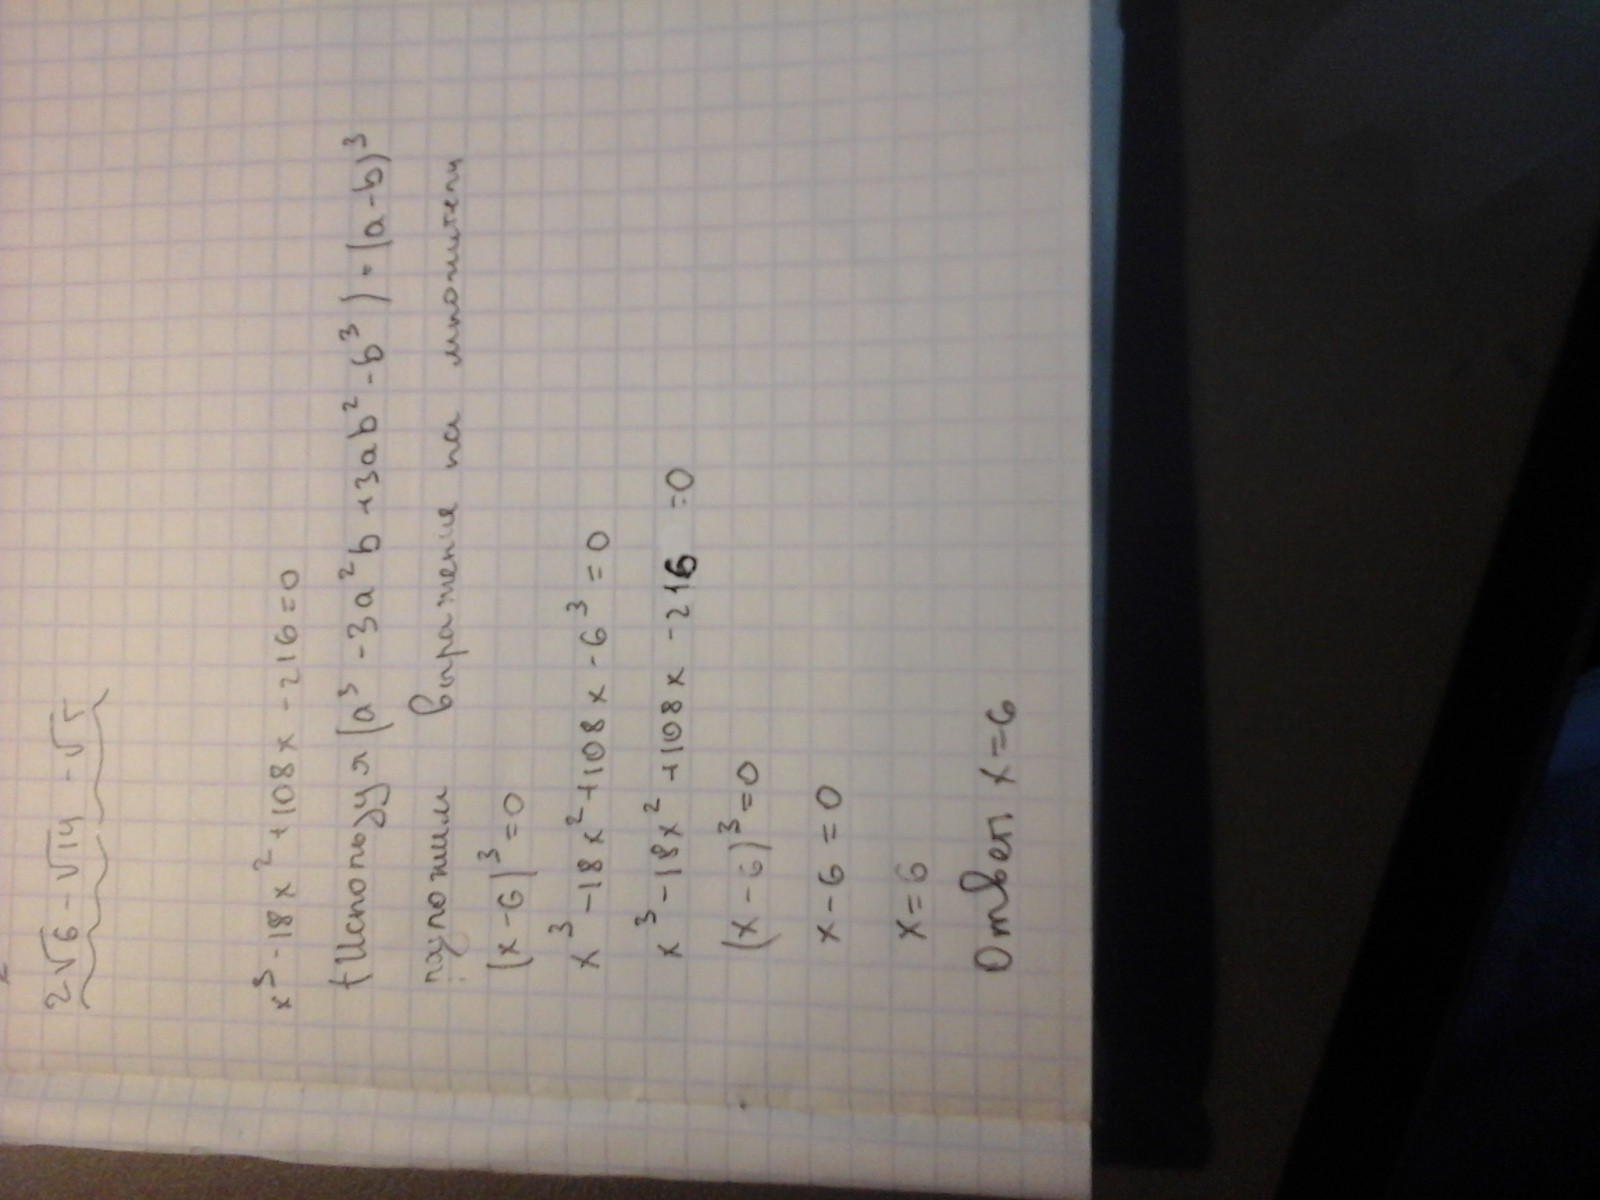 2√6 - √14 - √5
x³ - 18x² + 108x - 216 = 0
Используя (a³ - 3a²b + 3ab² - b³) = (a-b)³
разложим выражение на множители
(x-6)³ = 0
x³ - 18x² + 108x - 6³ = 0
x³ - 18x² + 108x - 216 = 0
(x-6)³ = 0
x - 6 = 0
x = 6
Ответ x = 6